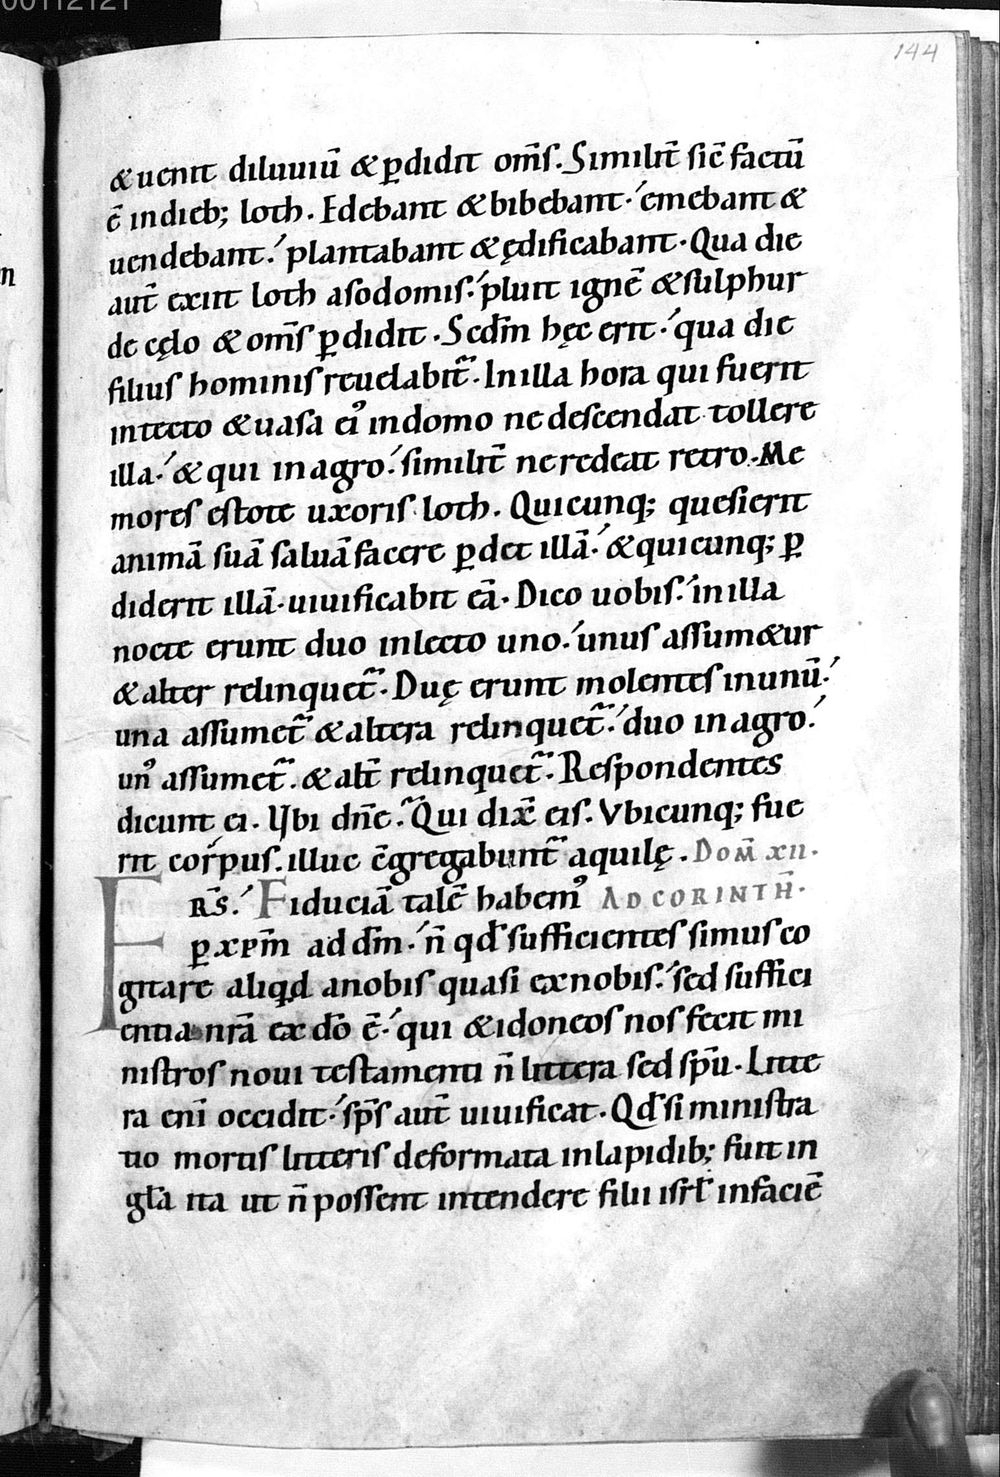 00112121
144
& uenit diluuiū & ꝑdidit om̄s. Similit̄ sic̄ factū
ē indieb; loth. Edebant & bibebant. emebant &
uendebant. plantabant & ędificabant. Qua die
aut̄ exiit loth asodomis. pluit ignē & sulphur
de cęlo & om̄s ꝑdidit. Scd̄m hęc erit. qua die
filius hominis reuelabit̄. Inilla hora qui fuerit
intecto & uasa ei᾿ indomo ne descendat tollere
illa. & qui inagro. similit̄ ne redeat retro. Me
mores estote uxoris loth. Quicunq; quesierit
animā suā saluā facere ꝑdet illā. & quicunq; ꝑ
diderit illā. uiuificabit eā. Dico uobis. inilla
nocte erunt duo inlecto uno. unus assum&ur
& alter relinquet̄. Duę erunt molentes inunū.
una assumet̄ & altera relinquet̄. duo inagro.
un᾿ assumet̄. & alt̄ relinquet̄. Respondentes
dicunt ei. Ubi dn̄e. Qui dix̄ eis. Vbicunq; fue
rit corpus. illuc c̄gregabunt̄ aquilę. Dom̄ xii.
FRS̄. Fiduciā talē habem᾿ AD CORINTH̄.
ꝑ xp̄m ad dm̄. n̄ qd̄ sufficientes simus co
gitare aliqd anobis quasi exnobis. sed suffici
entia nr̄a ex dō ē. qui & idoneos nos fecit mi
nistros noui testamenti n̄ littera sed sp̄u. Litte
ra eni̅ occidit. sp̄s aut̄ uiuificat. Qd̄ si ministra
tio mortis litteris deformata inlapidib; fuit in
gl̄a ita ut n̄ possent intendere filii isrl̄ infaciē